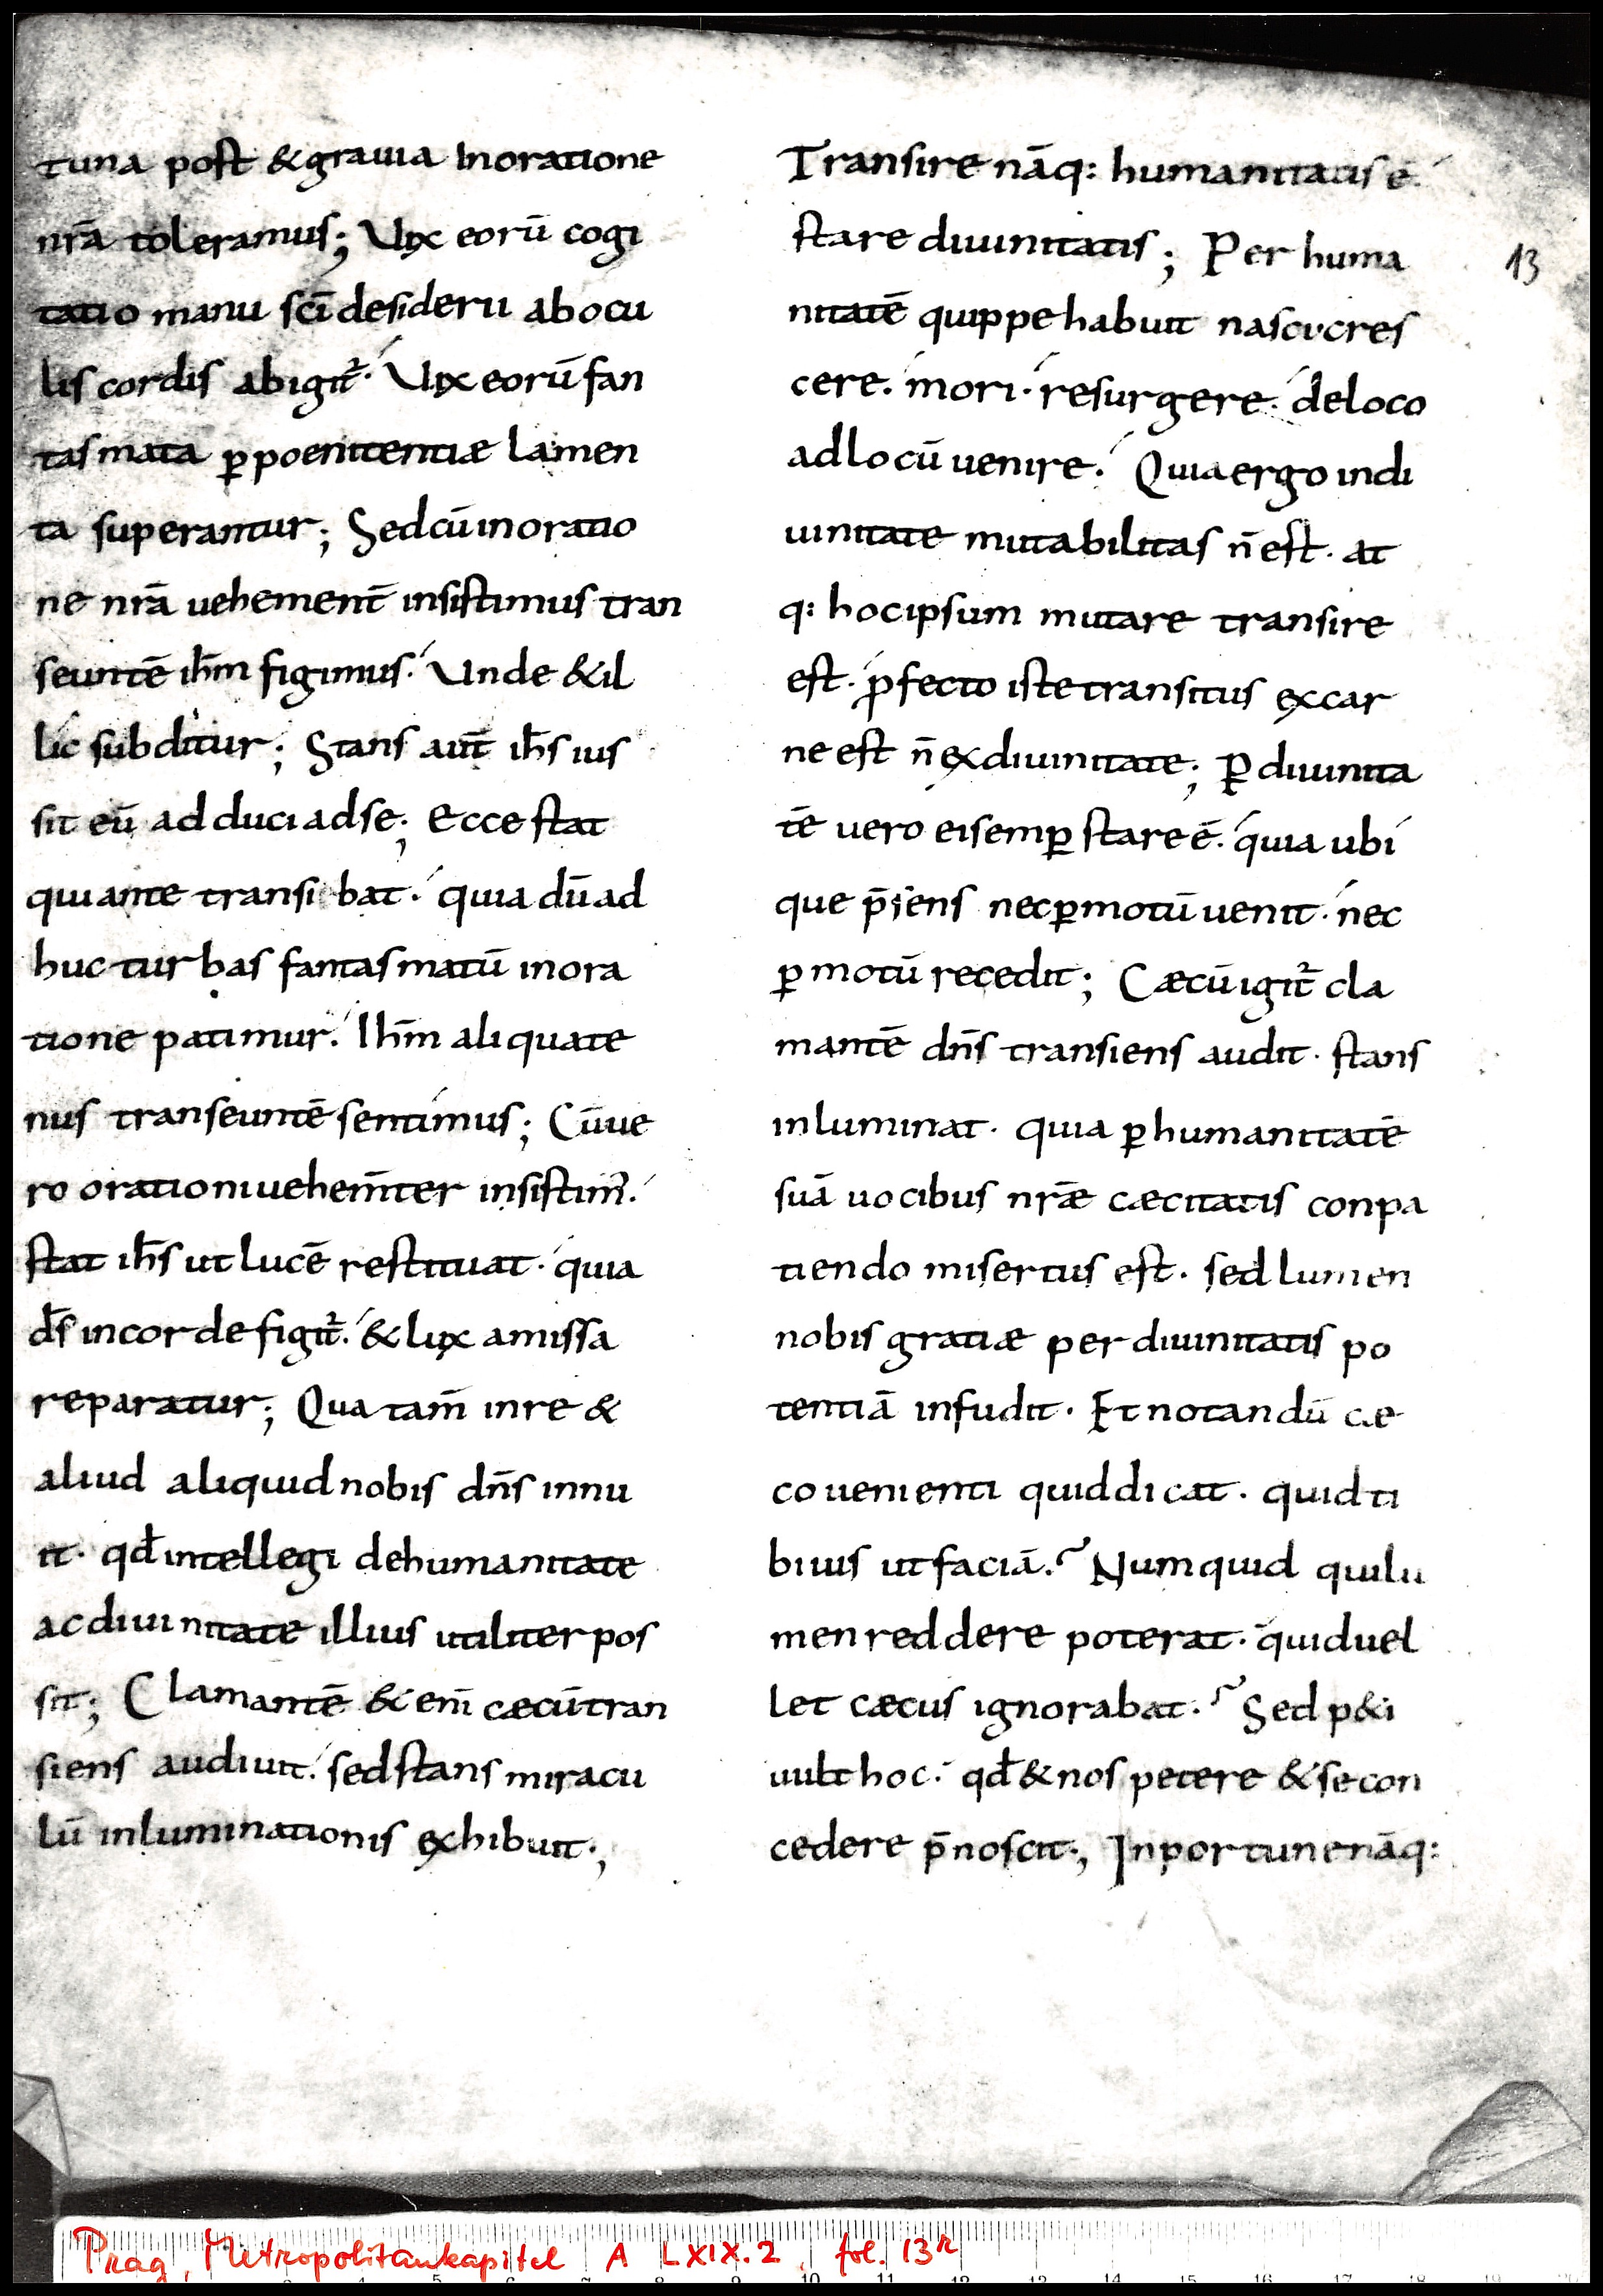 tuna post & grauia In oratione
nr̄a toleramus; Uix eorū cogi
tatio manu sc̄i desiderii ab ocu
lis cordis abigit᷑. Uix eorū fan
tasmata ꝑ poenitentiæ lamen
ta superantur; Sed cū in oratio
ne nr̄a uehement̄ insistimus tran
seuntē ih̄m figimus. Unde & il
lic subditur; Stans aut̄ ih̄s ius
sit eū adduci ad se; Ecce stat
qui ante transibat. quia dū ad
huc turbas fantasmatū in ora
tione patimur. Ih̄m aliquate
nus transeuntē sentimus; Cū ue
ro orationi uehem̄ter insistim᷒.
stat ih̄s ut lucē restituat. quia
d̄s in corde figit᷑. & lux amissa
reparatur; Qua tam̄ in re &
aliud aliquid nobis dn̄s innu
it. qđ intellegi de humanitate
ac diuinitate illius utiliter pos
sit; Clamantē &eni̅ cæcū tran
siens audiuit. sed stans miracu
lū inluminationis exhibuit;
Transire nāq: humanitatis ē.
stare diuinitatis; Per huma
nitatē quippe habuit nasci cres
cere. mori. resurgere. de loco
ad locū uenire. Quia ergo in di
uinitate mutabilitas n̄ est. at
q: hoc ipsum mutare transire
est. ꝓfecto iste transitus ex car
ne est n̄ ex diuinitate; Ꝑ diuinita
tē uero ei semꝑ stare ē. quia ubi
que p̄sens nec ꝑ motū uenit. nec
ꝑ motū recedit; Cæcū igit᷑ cla
mantē dn̄s transiens audit. stans
inluminat. quia ꝑ humanitatē
suā uocibus nr̄æ cæcitatis conpa
tiendo misertus est. sed lumen
nobis gratiæ per diuinitatis po
tentiā infudit. Et notandū cæ
co uenienti quid dicat. quid ti
bi uis ut faciā? Numquid qui lu
men reddere poterat. quid uel
let cæcus ignorabat? Sed p&i
uult hoc. qđ & nos petere & se con
cedere p̄noscit; Inportune nāq:
13
Prag, Metropolitankapitel A LXIX.2, fol. 13r